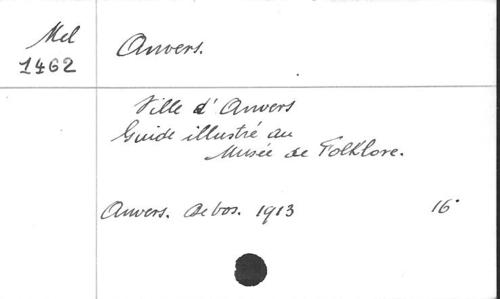 Mel
1462
Anvers.
Ville d'Anvers
Guide illustré au
Musée de Folklore.
Anvers. Debos. 1913 16°